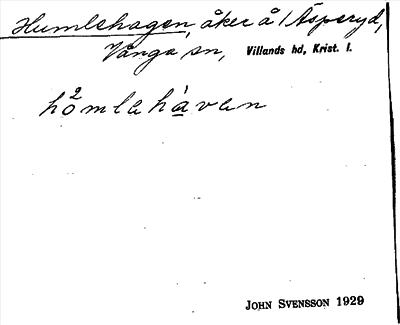 Humlehagen, åker å 1 Äsperyd,
Vånga sn, Villands hd, Krist. l.
hò²mlahàvan
JOHN SVENSSON 1929